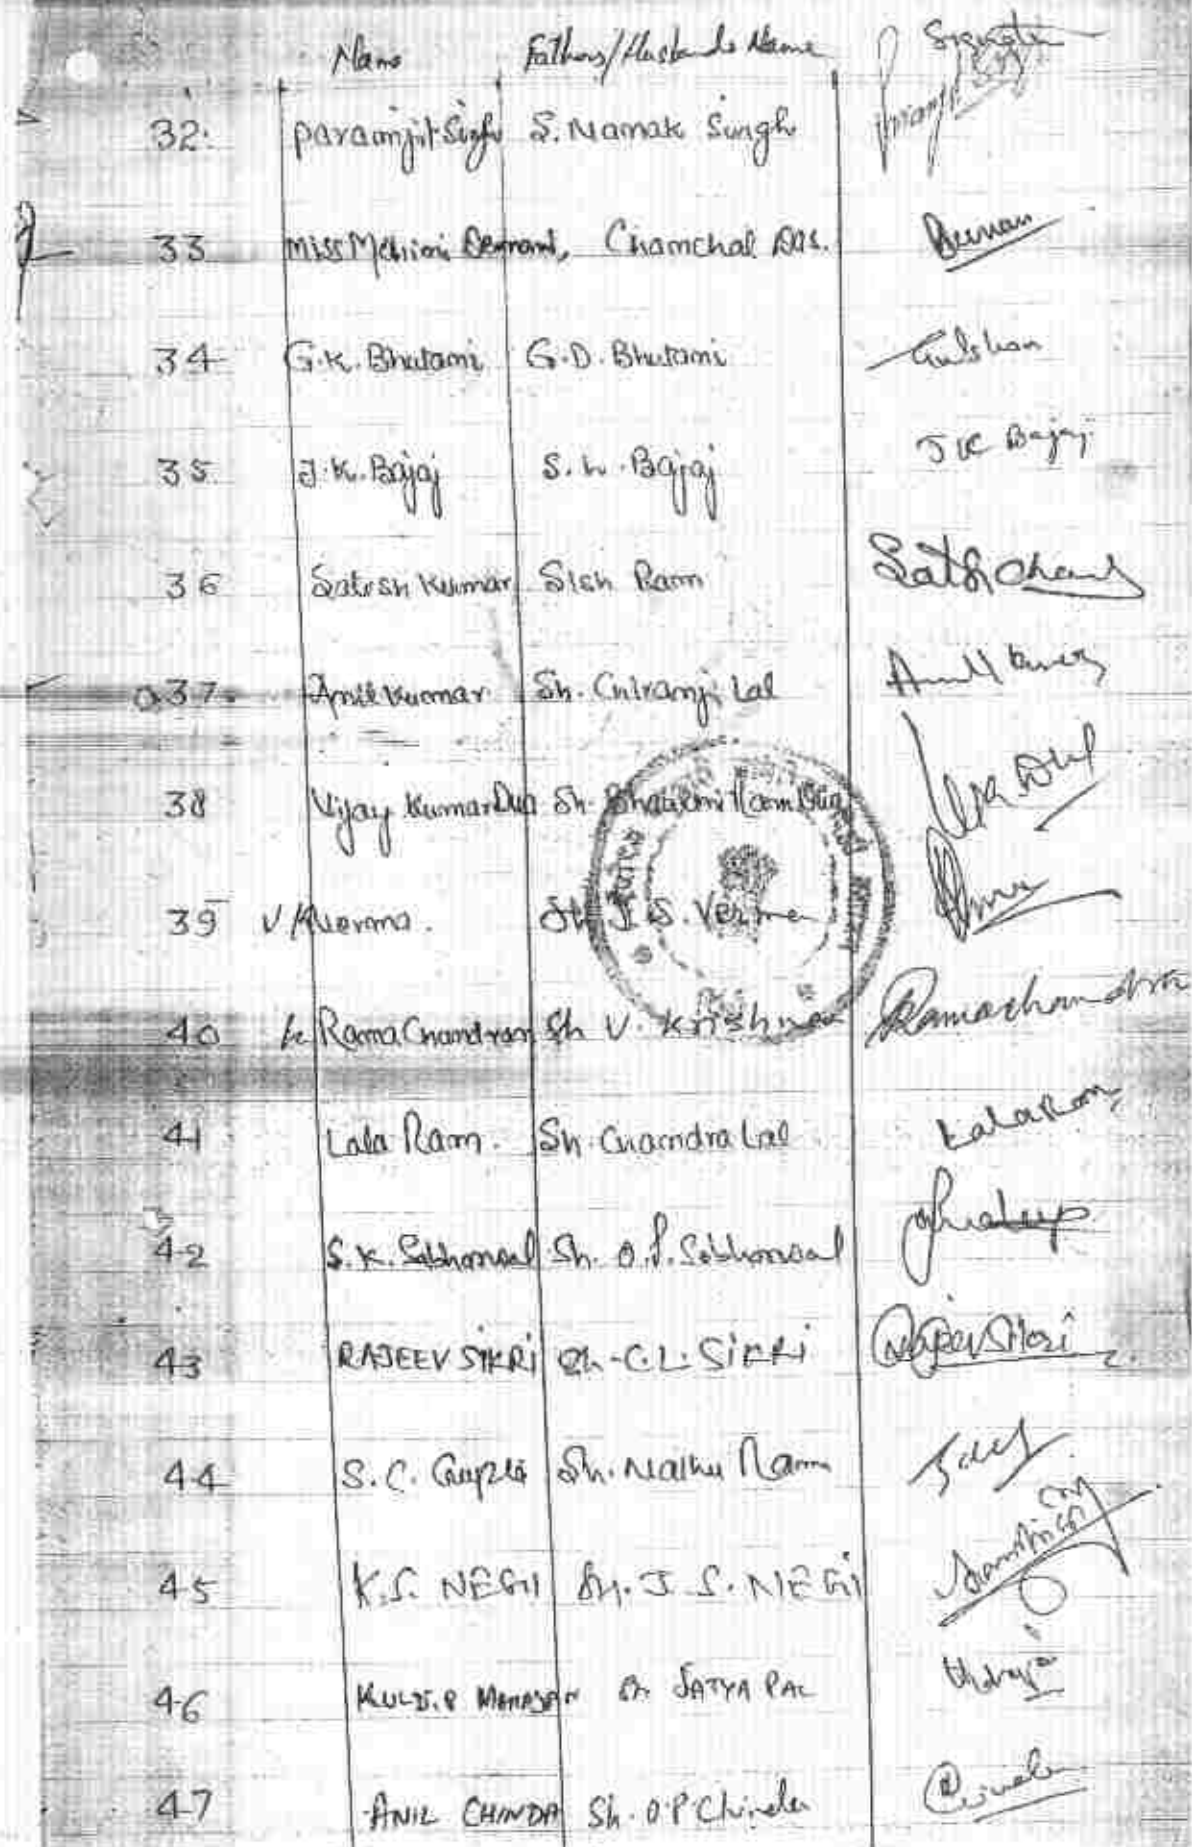 Name Fathers/Husbands Name Signature
32. Paramjit Singh S. Nanak Singh
33 Miss Chanchal Das.
34 G.K. Bhutani G.D. Bhutani Gulshan
35 J.K. Bajaj S. Bajaj J K Bajaj
36 Satish Kumar Sish Ram Satish Chand
37. Anil Kumar Sh. Chiranji Lal Anil Kumar
38 Vijay Kumar Dua Sh. Ram Dua
39 V K Verma. Sh J.S. Verma
40 K Rama Chandran Sh V. Krishnan Ramachandran
41 Lala Ram. Sh. Chandra Lal Lalaram
42 S.K. Sabharwal Sh. O.P. Sabharwal
43 RAJEEV SIKRI Sh. C.L. SIKRI Rajeev Sikri
44 S.C. Gupta Sh. Nathu Ram
45 K.S. NEGI Sh. J.S. NEGI
46 KULDIP MAHAJAN Sh SATYA PAL
47 ANIL CHINDA Sh. O P Chinda